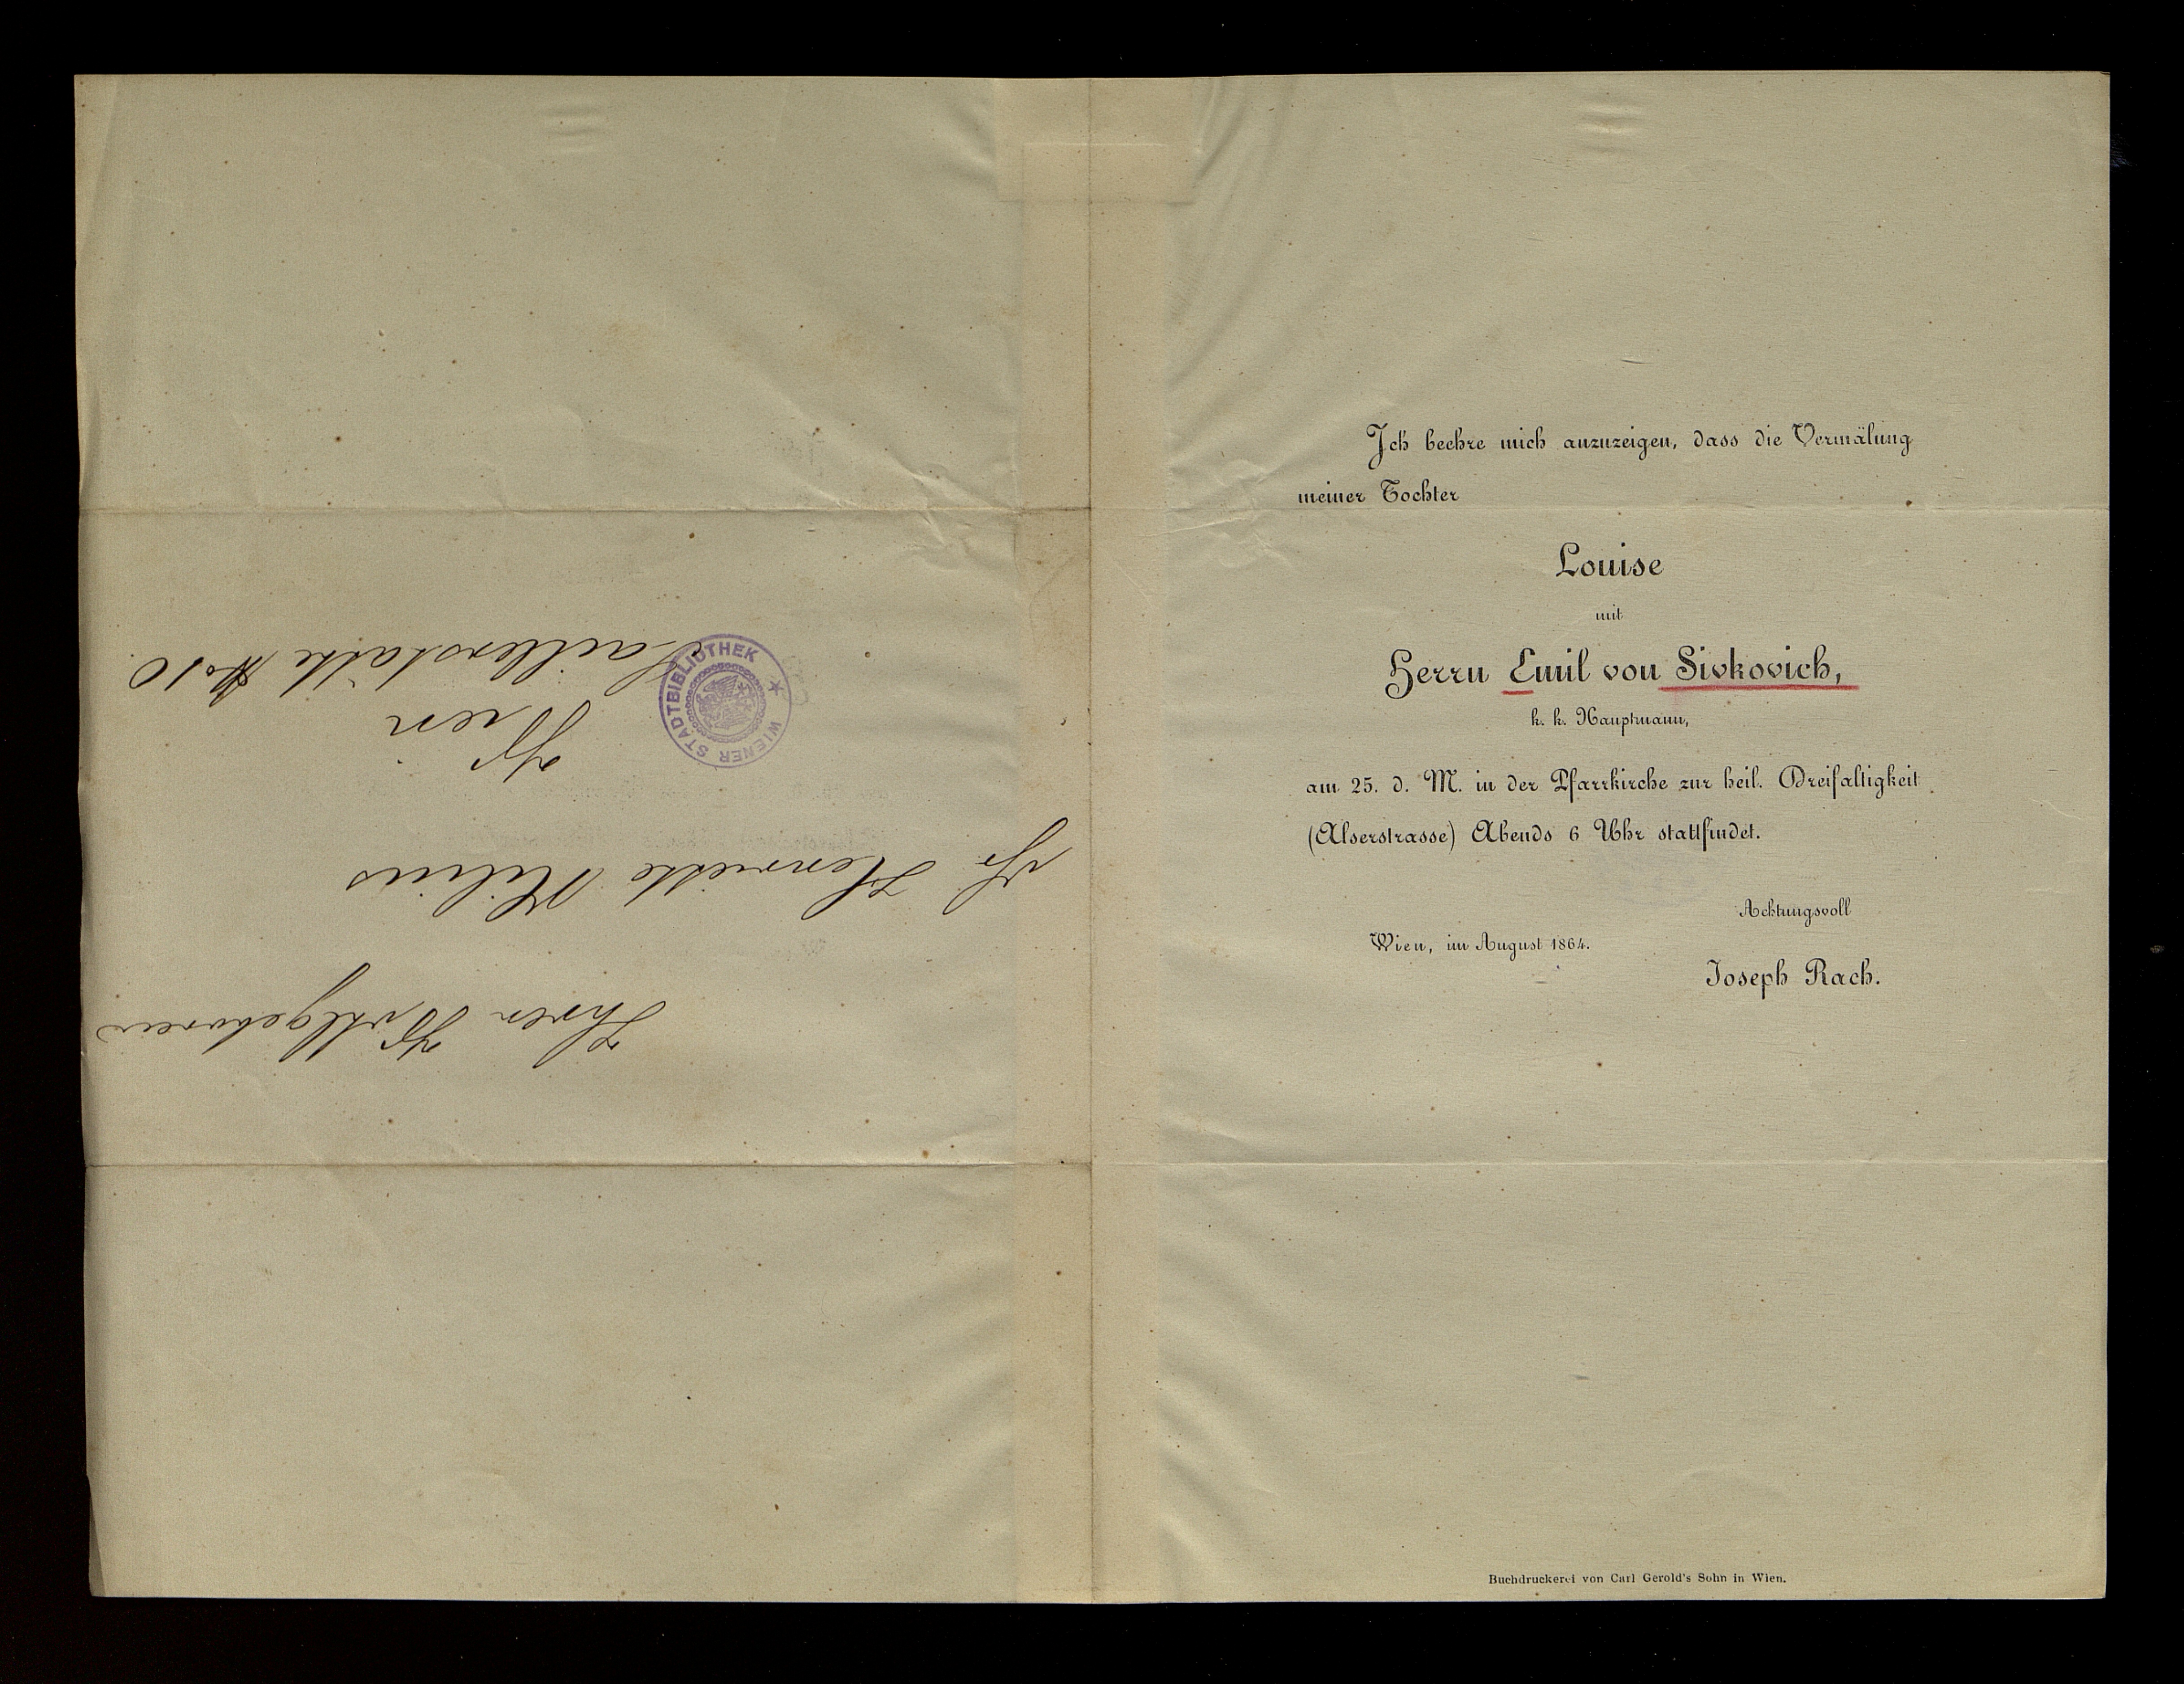 Ich beehre mich anzuzeigen, dass die Vermälung
meiner Tochter
Louise
mit
Herrn Emil von Sivkovich,
k. k. Hauptmann,
am 25. d. M. in der Pfarrkirche zur heil. Dreifaltigkeit
(Alserstrasse) Abends 6 Uhr stattfindet.
Achtungsvoll
Wien, im August 1864.
Joseph Rach.
Buchdruckerei von Carl Gerold's Sohn in Wien.
Ihrer Wohlgeboren
Fr Henriette
Wien
Seilerstätte No 10.
WIENER STADTBIBLIOTHEK